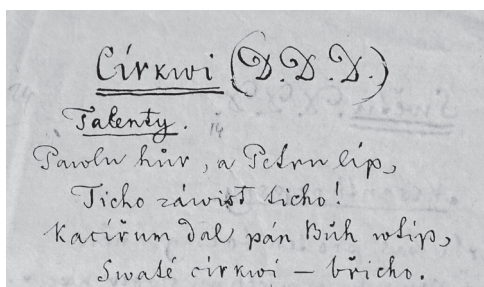 Církwi (D. D. D.)
Talenty.
14
Pawlu hůř, a Petru líp,
Ticho záwist ticho!
Kacířum dal pán Bůh wtip,
Swaté církwi — břicho.